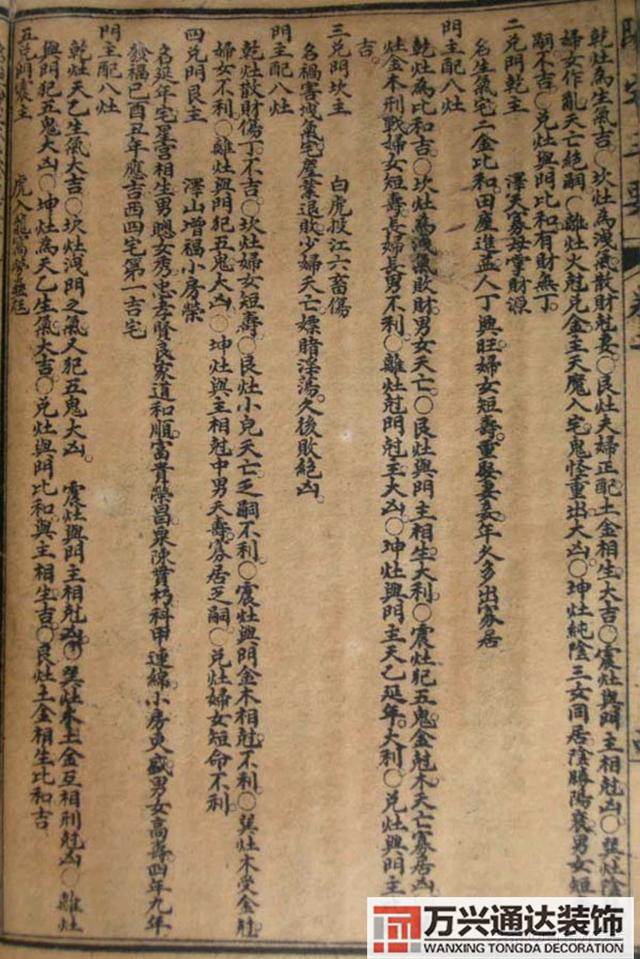 陽宅三要
乾灶為生氣吉○坎灶為洩氣散財尅妻○艮灶夫婦正配土金相生大吉○震灶與門主相尅凶○巽灶陰
婦女作亂夭亡絕嗣○離灶火尅兌金主天魔入宅鬼怪重出大凶○坤灶純陰三女同居陰勝陽衰男女短
嗣不吉○兌灶與門比和有財無丁
二兌門乾主　澤天寡母掌財源
名生氣宅二金比和田產進益人丁興旺婦女短壽重娶妻妾年久多出寡居
門主配八灶
乾灶為比和吉○坎灶為洩氣敗財男女夭亡○艮灶與門主相生大利○震灶犯五鬼金尅木夭亡寡居凶
灶金木刑戰婦女短壽長婦長男不利○離灶尅門尅主大凶○坤灶與門主天乙延年大利○兌灶與門主
吉
三兌門坎主　白虎投江六畜傷
名禍害洩氣宅產業退敗少婦夭亡嫖賭淫蕩久後敗絕凶
門主配八灶
乾灶散財傷丁不吉○坎灶婦女短壽○艮灶小兒夭亡乏嗣不利○震灶與門金木相尅不利○巽灶木受金尅
婦女不利○離灶與門犯五鬼大凶○坤灶與主相尅中男夭壽寡居乏嗣○兌灶婦女短命不利
四兌門艮主　澤山增福小房榮
名延年宅星宮相生男聰女秀忠孝賢良家道和順富貴榮昌粟陳貫朽科甲連綿小房更盛男女高壽四年九年
發福巳酉丑年應吉西四宅第一吉宅
門主配八灶
乾灶天乙生氣大吉○坎灶洩門之氣又犯五鬼大凶　震灶與門主相尅凶○巽灶木土金互相刑尅凶○離灶
與門犯五鬼大凶○坤灶為天乙生氣大吉○兌灶與門比和與主相生吉○艮灶土金相生比和吉
五兌門震主　虎入龍窩
万兴通达装饰
WANXING TONGDA DECORATION